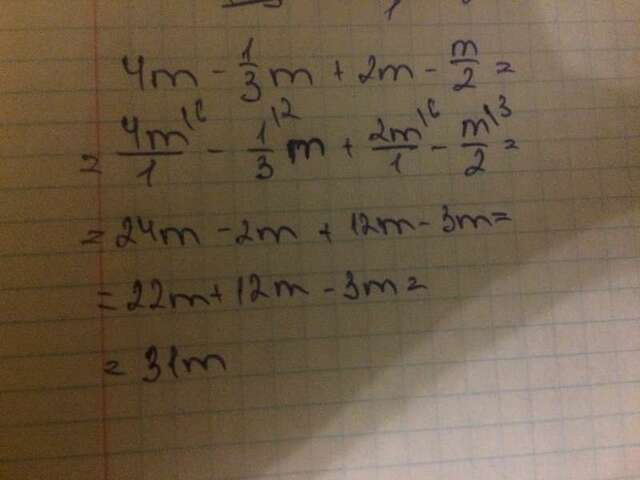 4m - 1/3 m + 2m - m/2 =
= 4m/1 \6 - 1/3 \2 m + 2m/1 \6 - m/2 \3 =
= 24m - 2m + 12m - 3m =
= 22m + 12m - 3m =
= 31m